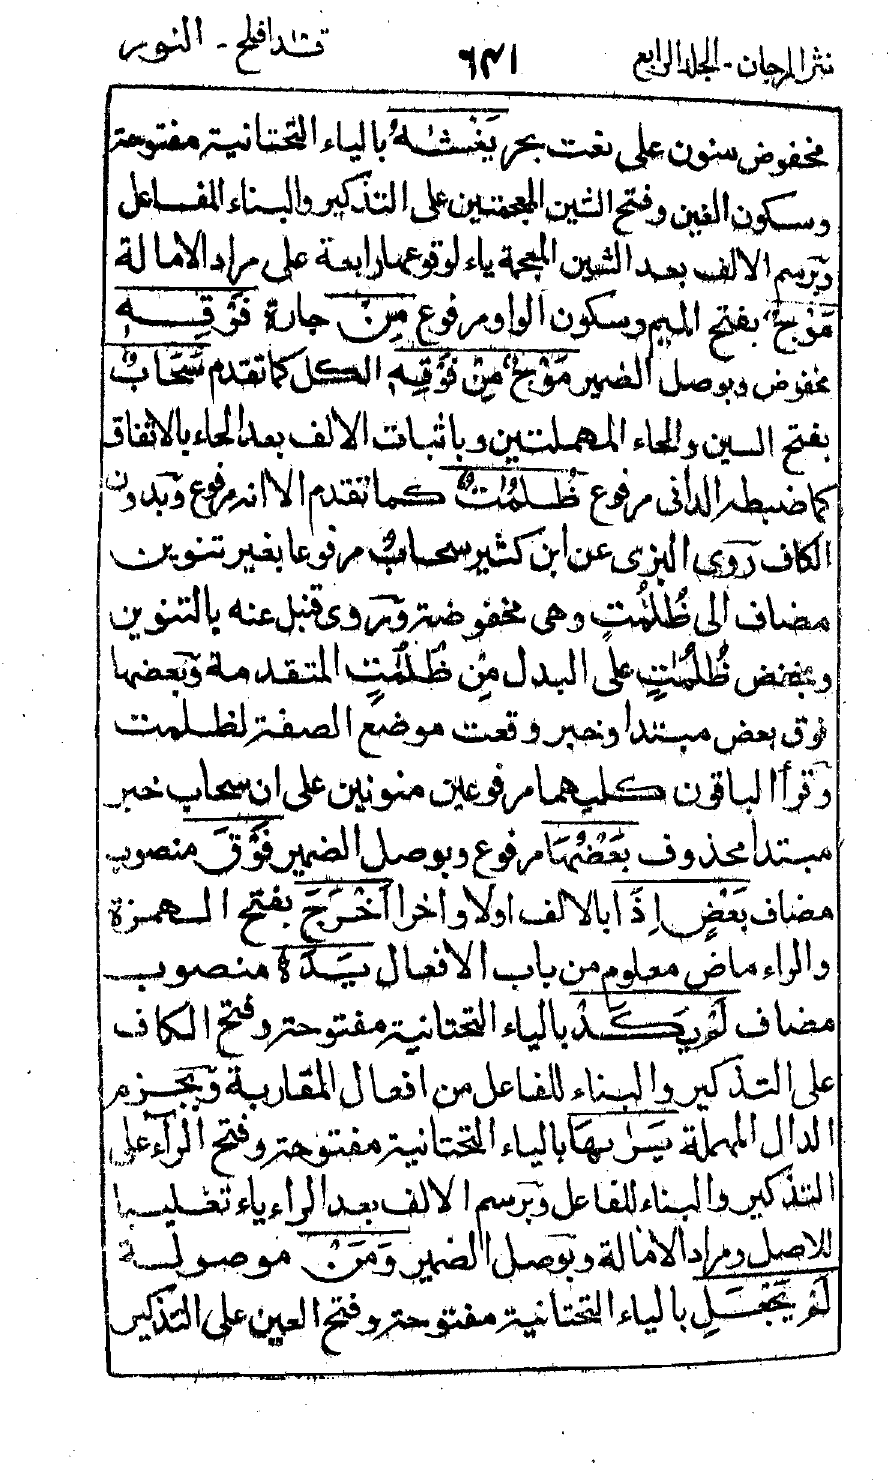 نثر المرجان - الجلد الرابع ٦٣١ قد افلح - النور
مخفوض منون على نعت بحر يَغْشٰىهُ بالياء التحتانية مفتوحة
وسكون الغين وفتح الشين المعجمتين على التذكير والبناء للفاعل
وبرسم الالف بعد الشين المعجمة ياء لوقوعها رابعة على مراد الامالة
مَوْجٌ بفتح الميم وسكون الواو مرفوع مِنْ جارة فَوْقِهِ
مخفوض وبوصل الضمير مَوْجٌ مِنْ فَوْقِهِ الكل كما تقدم سَحَابٌ
بفتح السين والحاء المهملتين وباثبات الالف بعد الحاء بالاتفاق
كما ضبطه الدانى مرفوع ظُلُمٰتٌ كما تقدم الا انه مرفوع وبدون
الكاف روى البزى عن ابن كثير سحابُ مرفوعا بغير تنوين
مضاف الى ظُلُمٰتٍ وهى مخفوضة وروى قنبل عنه بالتنوين
وبخفض ظُلُمٰتٍ على البدل مِن ظُلُمٰتٍ المتقدمة وبعضها
فوق بعض مبتدا وخبر وقعت موضع الصفة لظلمت
وقرأ الباقون كليهما مرفوعين منونين على ان سحاب خبر
مبتدا محذوف بَعْضُهَا مرفوع وبوصل الضمير فَوْقَ منصوب
مضاف بَعْضٍ اِذَا بالالف اولا واخرا اَخْرَجَ بفتح الهمزة
والراء ماض معلوم من باب الافعال يَدَهُ منصوب
مضاف لَمْ يَكَدْ بالياء التحتانية مفتوحة وفتح الكاف
على التذكير والبناء للفاعل من افعال المقاربة وبجزم
الدال المهملة يَرٰىهَا بالياء التحتانية مفتوحة وفتح الراء على
التذكير والبناء للفاعل وبرسم الالف بعد الراء ياء تغليبا
للاصل ومراد الامالة وبوصل الضمير وَمَنْ موصولة
لَمْ يَجْعَلِ بالياء التحتانية مفتوحة وفتح العين على التذكير